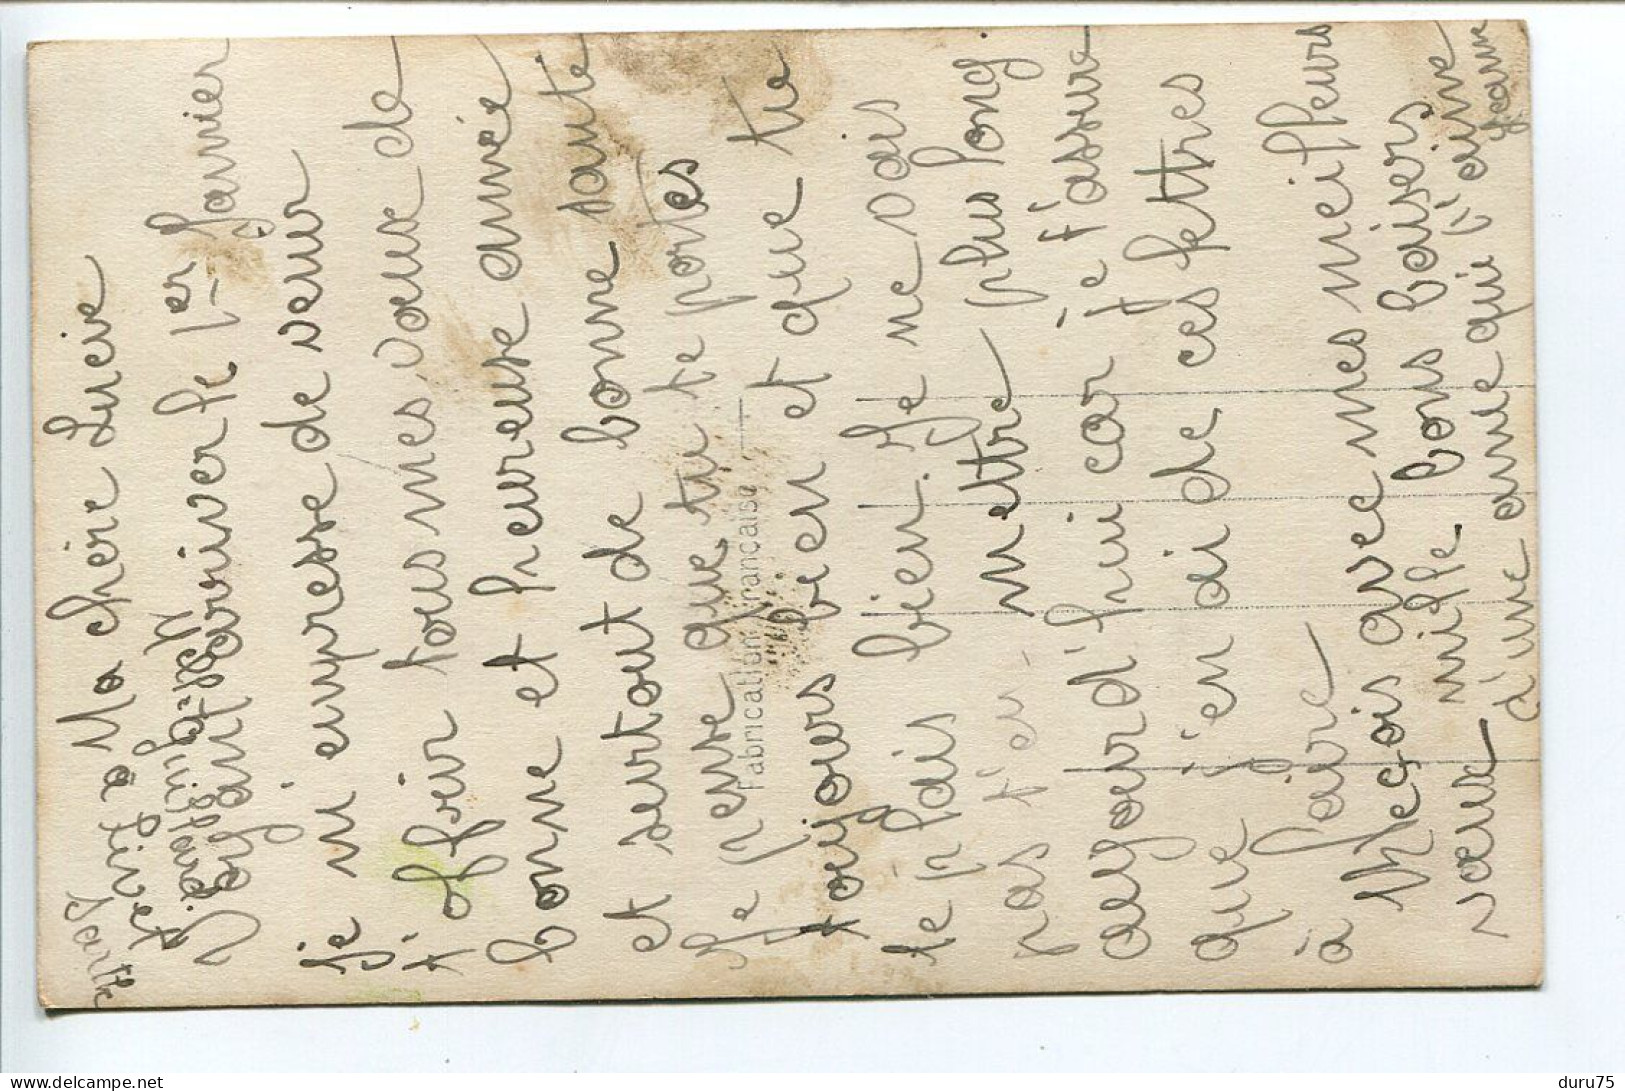 Ma chère Lucie
Voyant arriver le 1er Janvier
je m'empresse de venir
t'offrir tous mes vœux de
bonne et heureuse année
et surtout de bonne santé
Je pense que tu te portes
toujours bien et que tu
te plais bien. Je ne vais
pas t'en mettre plus long.
aujourd'hui car je t'assure
que j'en ai de ces lettres
à faire
Reçois avec mes meilleurs
vœux mille bons baisers
d'une amie qui t'aime
Jeanne
Sarthe
Fabrication Française
www.delcampe.net
duru75